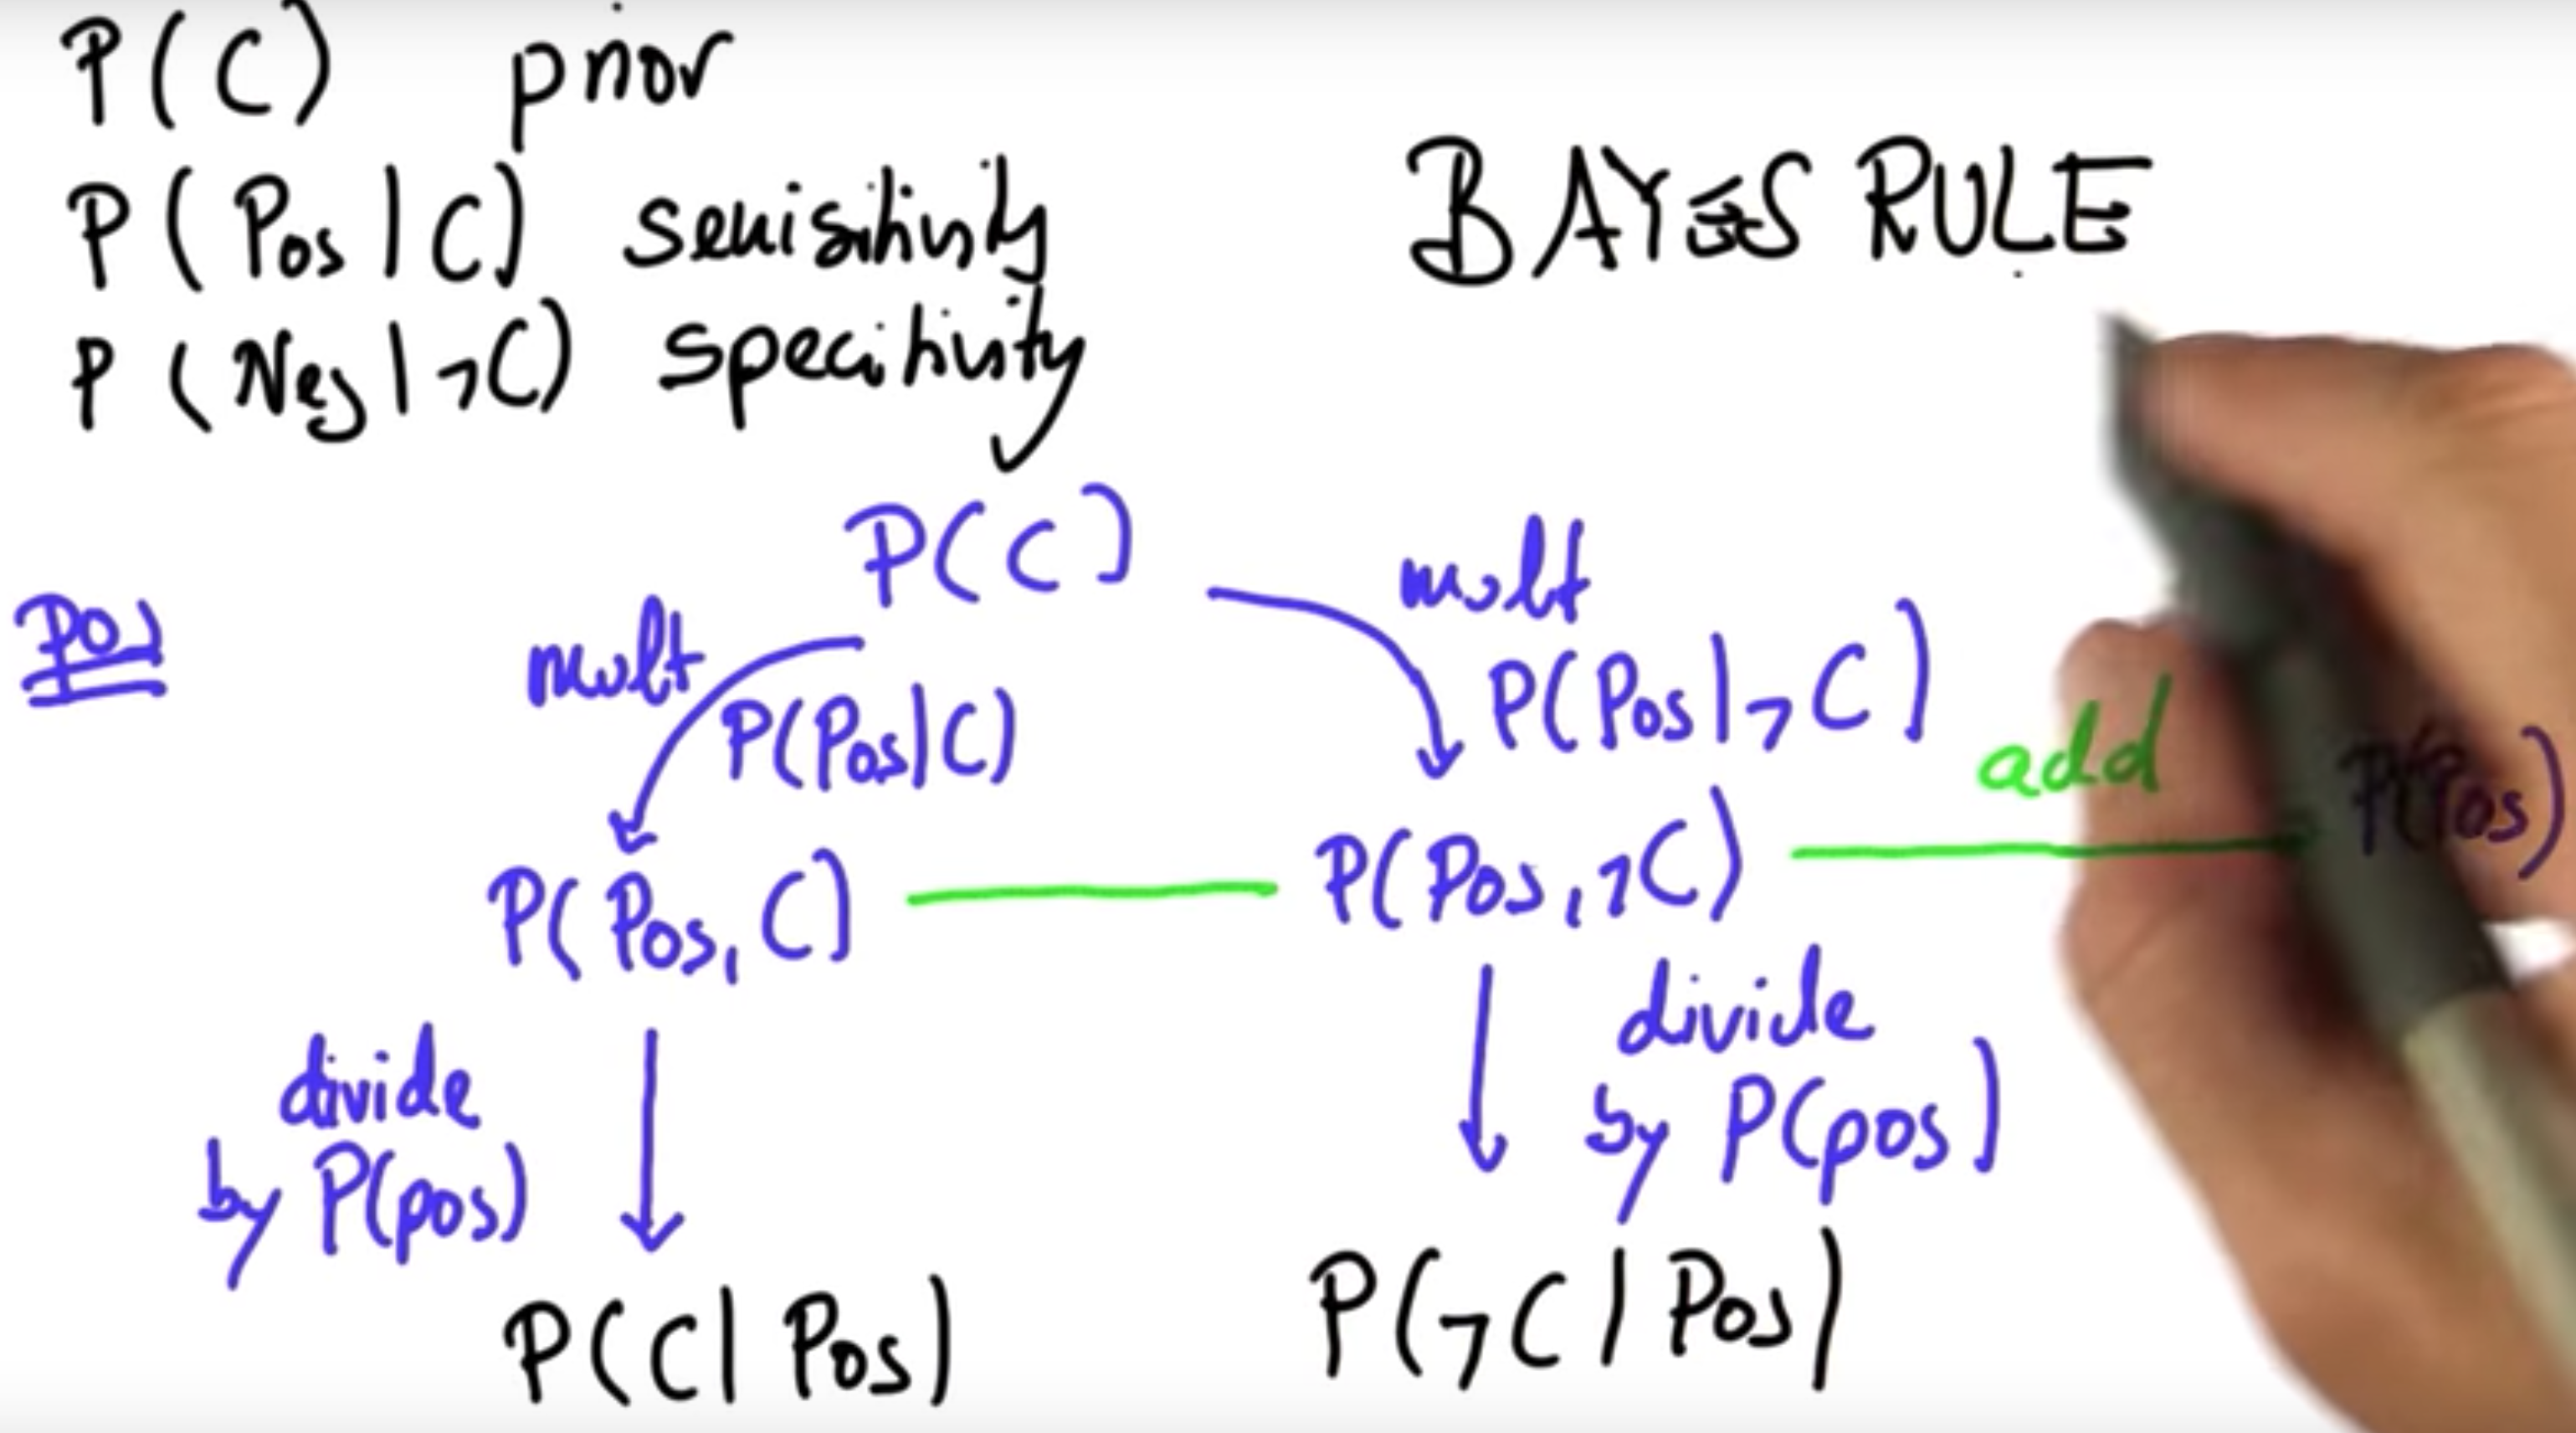 P(C) prior
P(Pos|C) sensitivity
P(Neg|¬C) specitivity
BAYES RULE
Pos
P(C)
mult
P(Pos|C)
mult
P(Pos|¬C)
P(Pos,C)
P(Pos,¬C)
add
P(Pos)
divide
by P(pos)
divide
by P(pos)
P(C|Pos)
P(¬C|Pos)